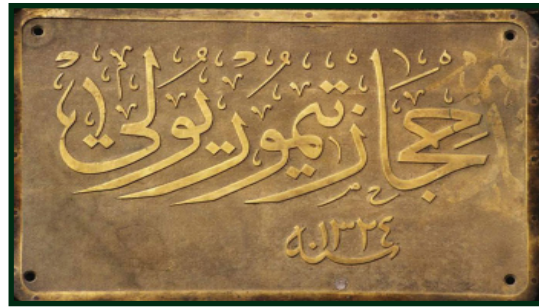 حجاز تيمور يولی
سنه ١٣٢٤